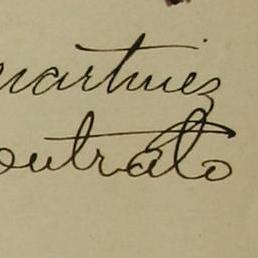 martinez
Contrato